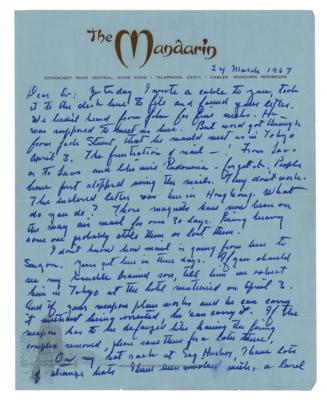 The Mandarin
CONNAUGHT ROAD CENTRAL, HONG KONG • TELEPHONE 220111 • CABLES MANDARIN HONGKONG
24 March 1967
Dear : Yesterday I wrote a cable to you, took
it to the desk here to file and found your letter.
We hadn't heard from John for five weeks. He
was supposed to meet us here. But word got through
from Jack Stuart, that he would meet us in Tokyo
April 3. The frustration of mail — From Java
or to Laos and this in Indonesia - forget it. People
have just stopped using the mails. They don't work.
The enclosed letter was here in Hong Kong. What
do you do? Those magnets have now been on
the way air mail for over 30 days. Being heavy
some one probably stole them or lost them.
I don't know how mail is going from here to
Saigon. Yours got here in three days. If you should
see my knuckle brained son, tell him we expect
him in Tokyo at the hotel mentioned on April 3.
And if your weapon plan works and he can carry
it without being arrested, he can carry it. If the
weapon has to be defanged like having the firing
removed, please save them for a later there,
On my hat rack at Sag Harbor, I have lots
of strange hats. I have been involved with a lot